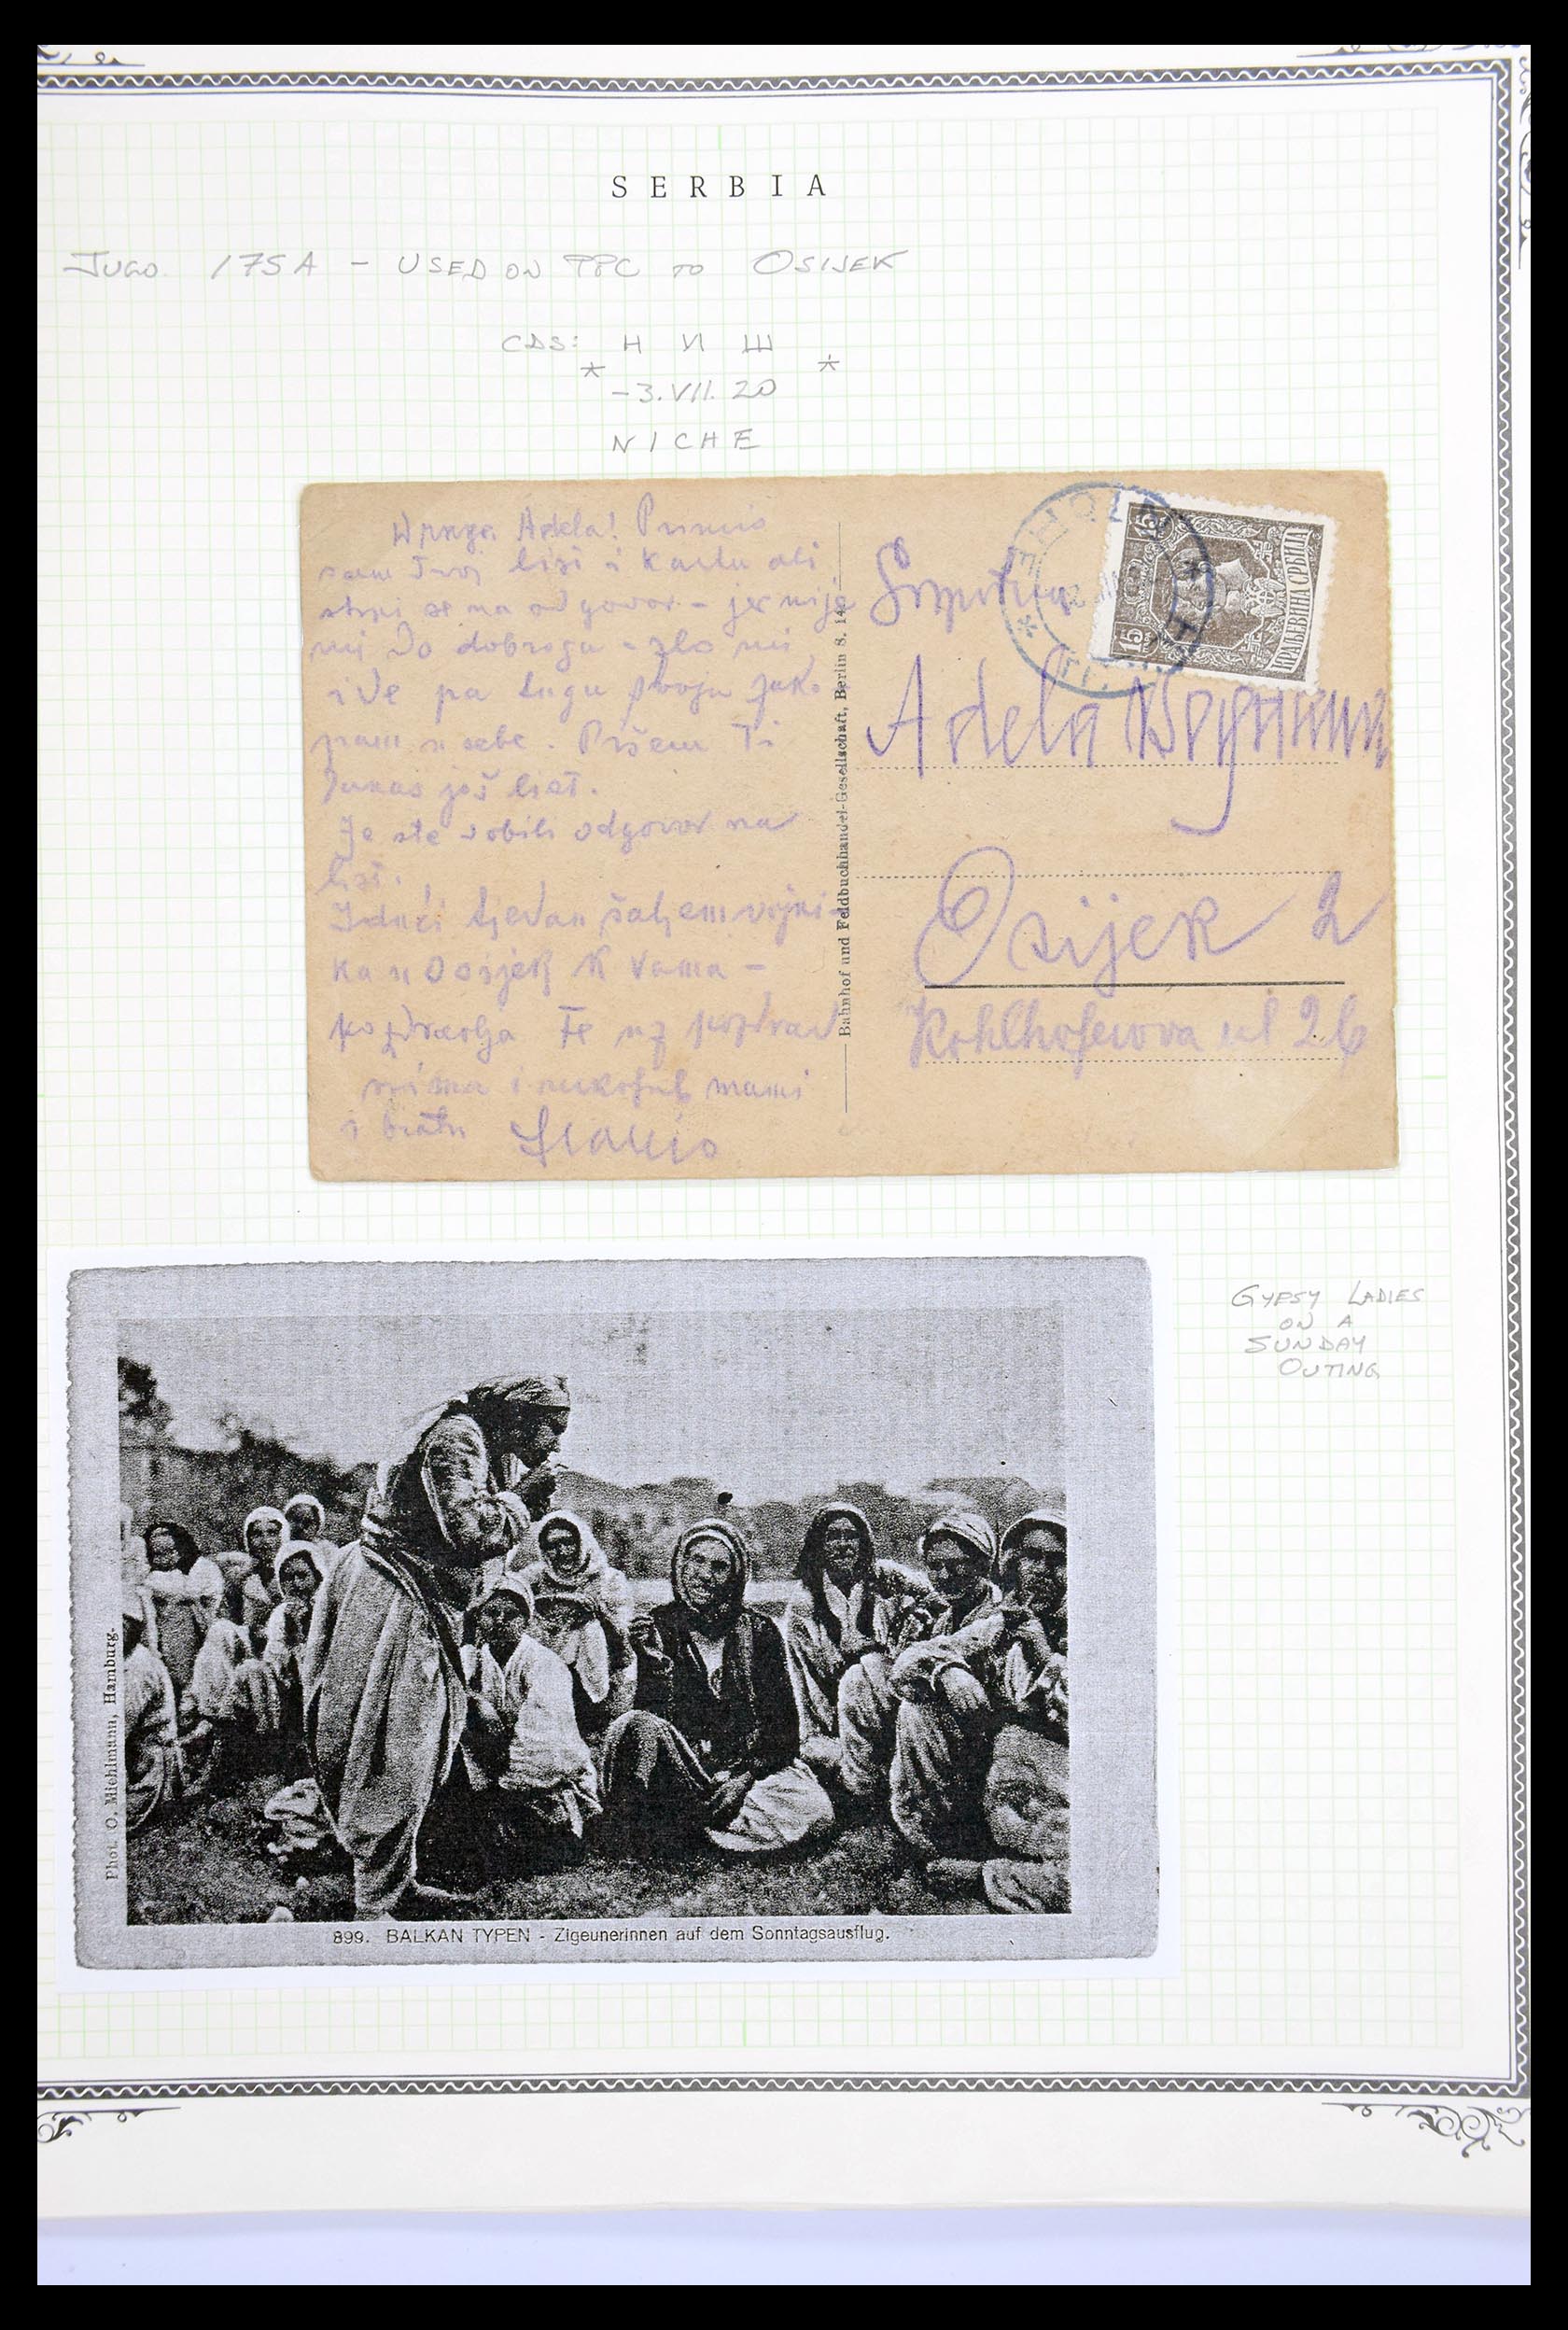 SERBIA
JUGO 175A - USED ON PPC TO OSIJEK
CDS: Н И Ш
* *
-3.VII.20
NICHE
Draga Adela! Primio
sam Tvoj list i kartu ali
se na odgovor - jer nije
mi do dobroga - zlo mi
ide pa tugu svoju
u sebe. Pišem Ti
danas još list.
Je ste dobili odgovor na
list.
Idući tjedan šaljem vojni-
ka u Osijek k vama -
pozdravlja Te uz pozdrav
svima i rukoljub mami
i bratu
Adela
Osijek 2
Kohlhoferova ul 26
15 15
КРАЉЕВИНА СРБИЈА
Bahnhof und Feldbuchhandel-Gesellschaft, Berlin S. 14.
GYPSY LADIES
ON A
SUNDAY
OUTING
Phot. O. Miehlmann, Hamburg.
899. BALKAN TYPEN - Zigeunerinnen auf dem Sonntagsausflug.